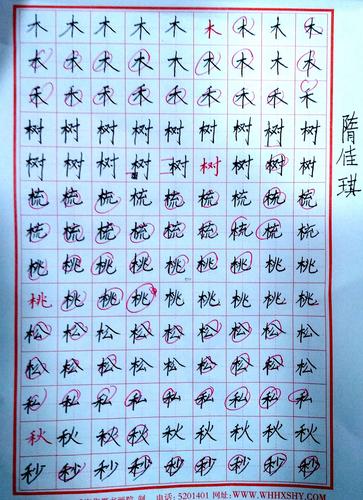 木 木 木 木 木 木 木 木 木
木 木 木 木 木 木 木 木 木
禾 禾 禾 禾 禾 禾 禾 禾 禾
树 树 树 树 树 树 树 树 树
树 树 树 树 树 树 树 树 树
梳 梳 梳 梳 梳 梳 梳 梳 梳
梳 梳 梳 梳 梳 梳 梳 梳 梳
桃 桃 桃 桃 桃 桃 桃 桃 桃
桃 桃 桃 桃 桃 桃 桃 桃 桃
松 松 松 松 松 松 松 松 松
松 松 松 松 松 松 松 松 松
私 私 私 私 私 私 私 私 私
秋 秋 秋 秋 秋 秋 秋 秋 秋
秒 秒 秒 秒 秒 秒 秒 秒 秒
书画院 制 电话: 5201401 网址:WWW.WHHXSHY.COM
隋佳琪